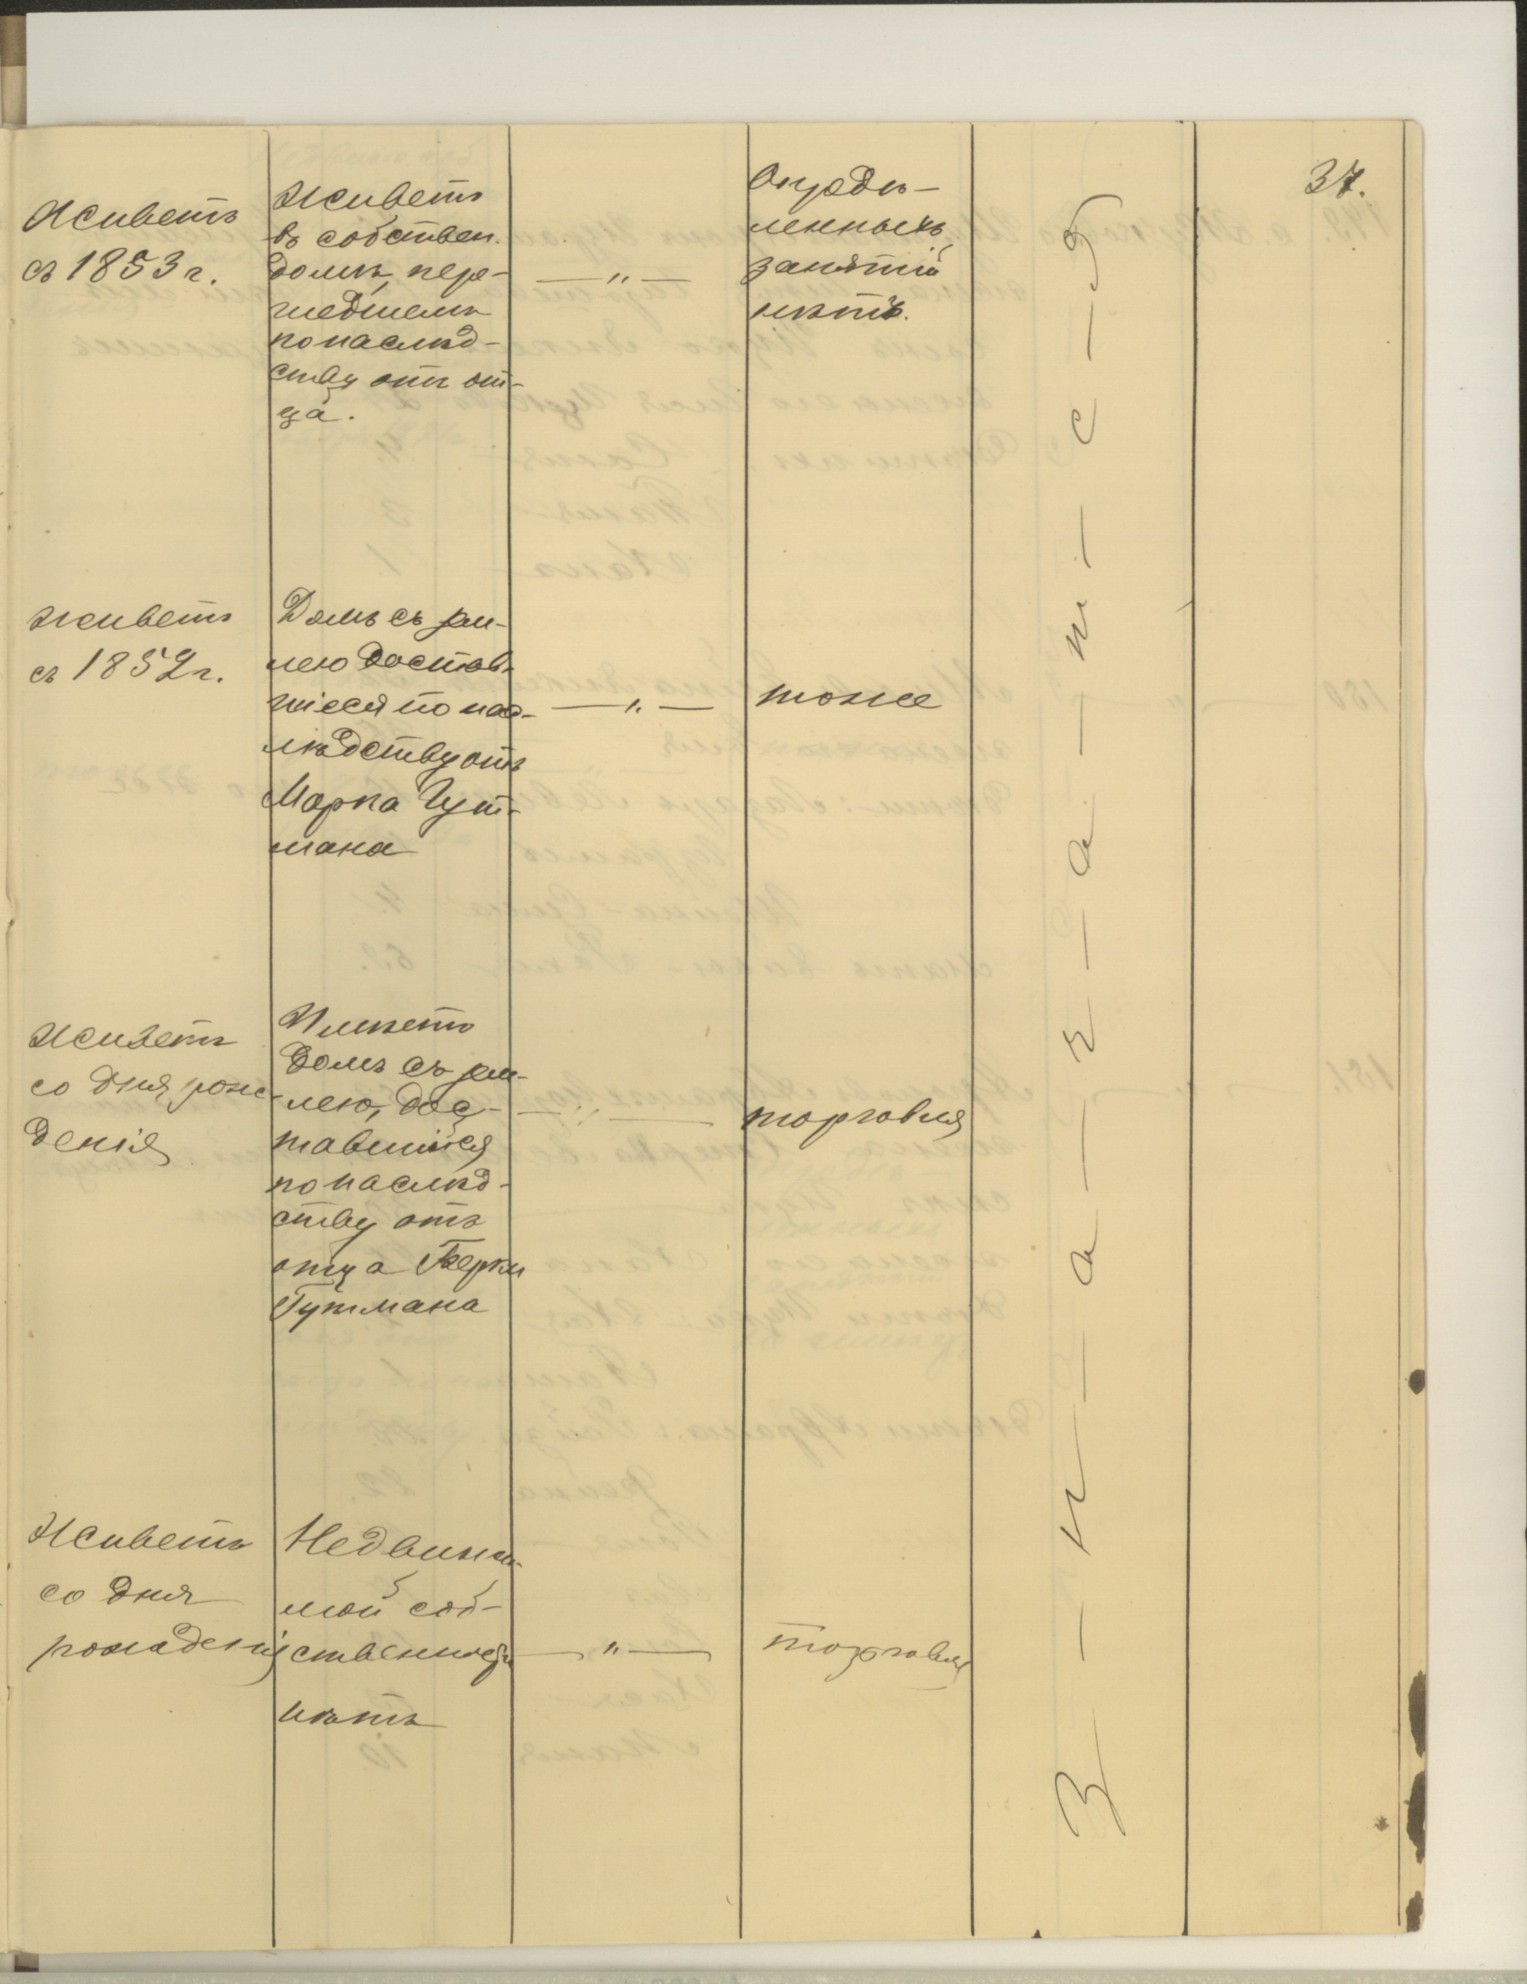 37.
Живетъ
съ 1853 г.
Живетъ
въ собствен.
домѣ, пере-
шедшемъ
по наслѣд-
ству отъ от-
ца.
— „ —
Опредѣ-
ленныхъ
занятій
нѣтъ.
Живетъ
съ 1852 г.
Домъ съ зем-
лею достав-
шіеся по нас-
лѣдству отъ
Марка Гут-
мана
— „ —
тоже
Живетъ
со дня рож-
денія
Имѣетъ
домъ съ зем-
лею, дос-
тавшійся
по наслѣд-
ству отъ
отца Берки
Гутмана
— „ —
торговля
Живетъ
со дня
рожденія
Недвижи-
мой соб-
ственности
нѣтъ
— „ —
торговля
З — н — а — ч — а — т — с — я